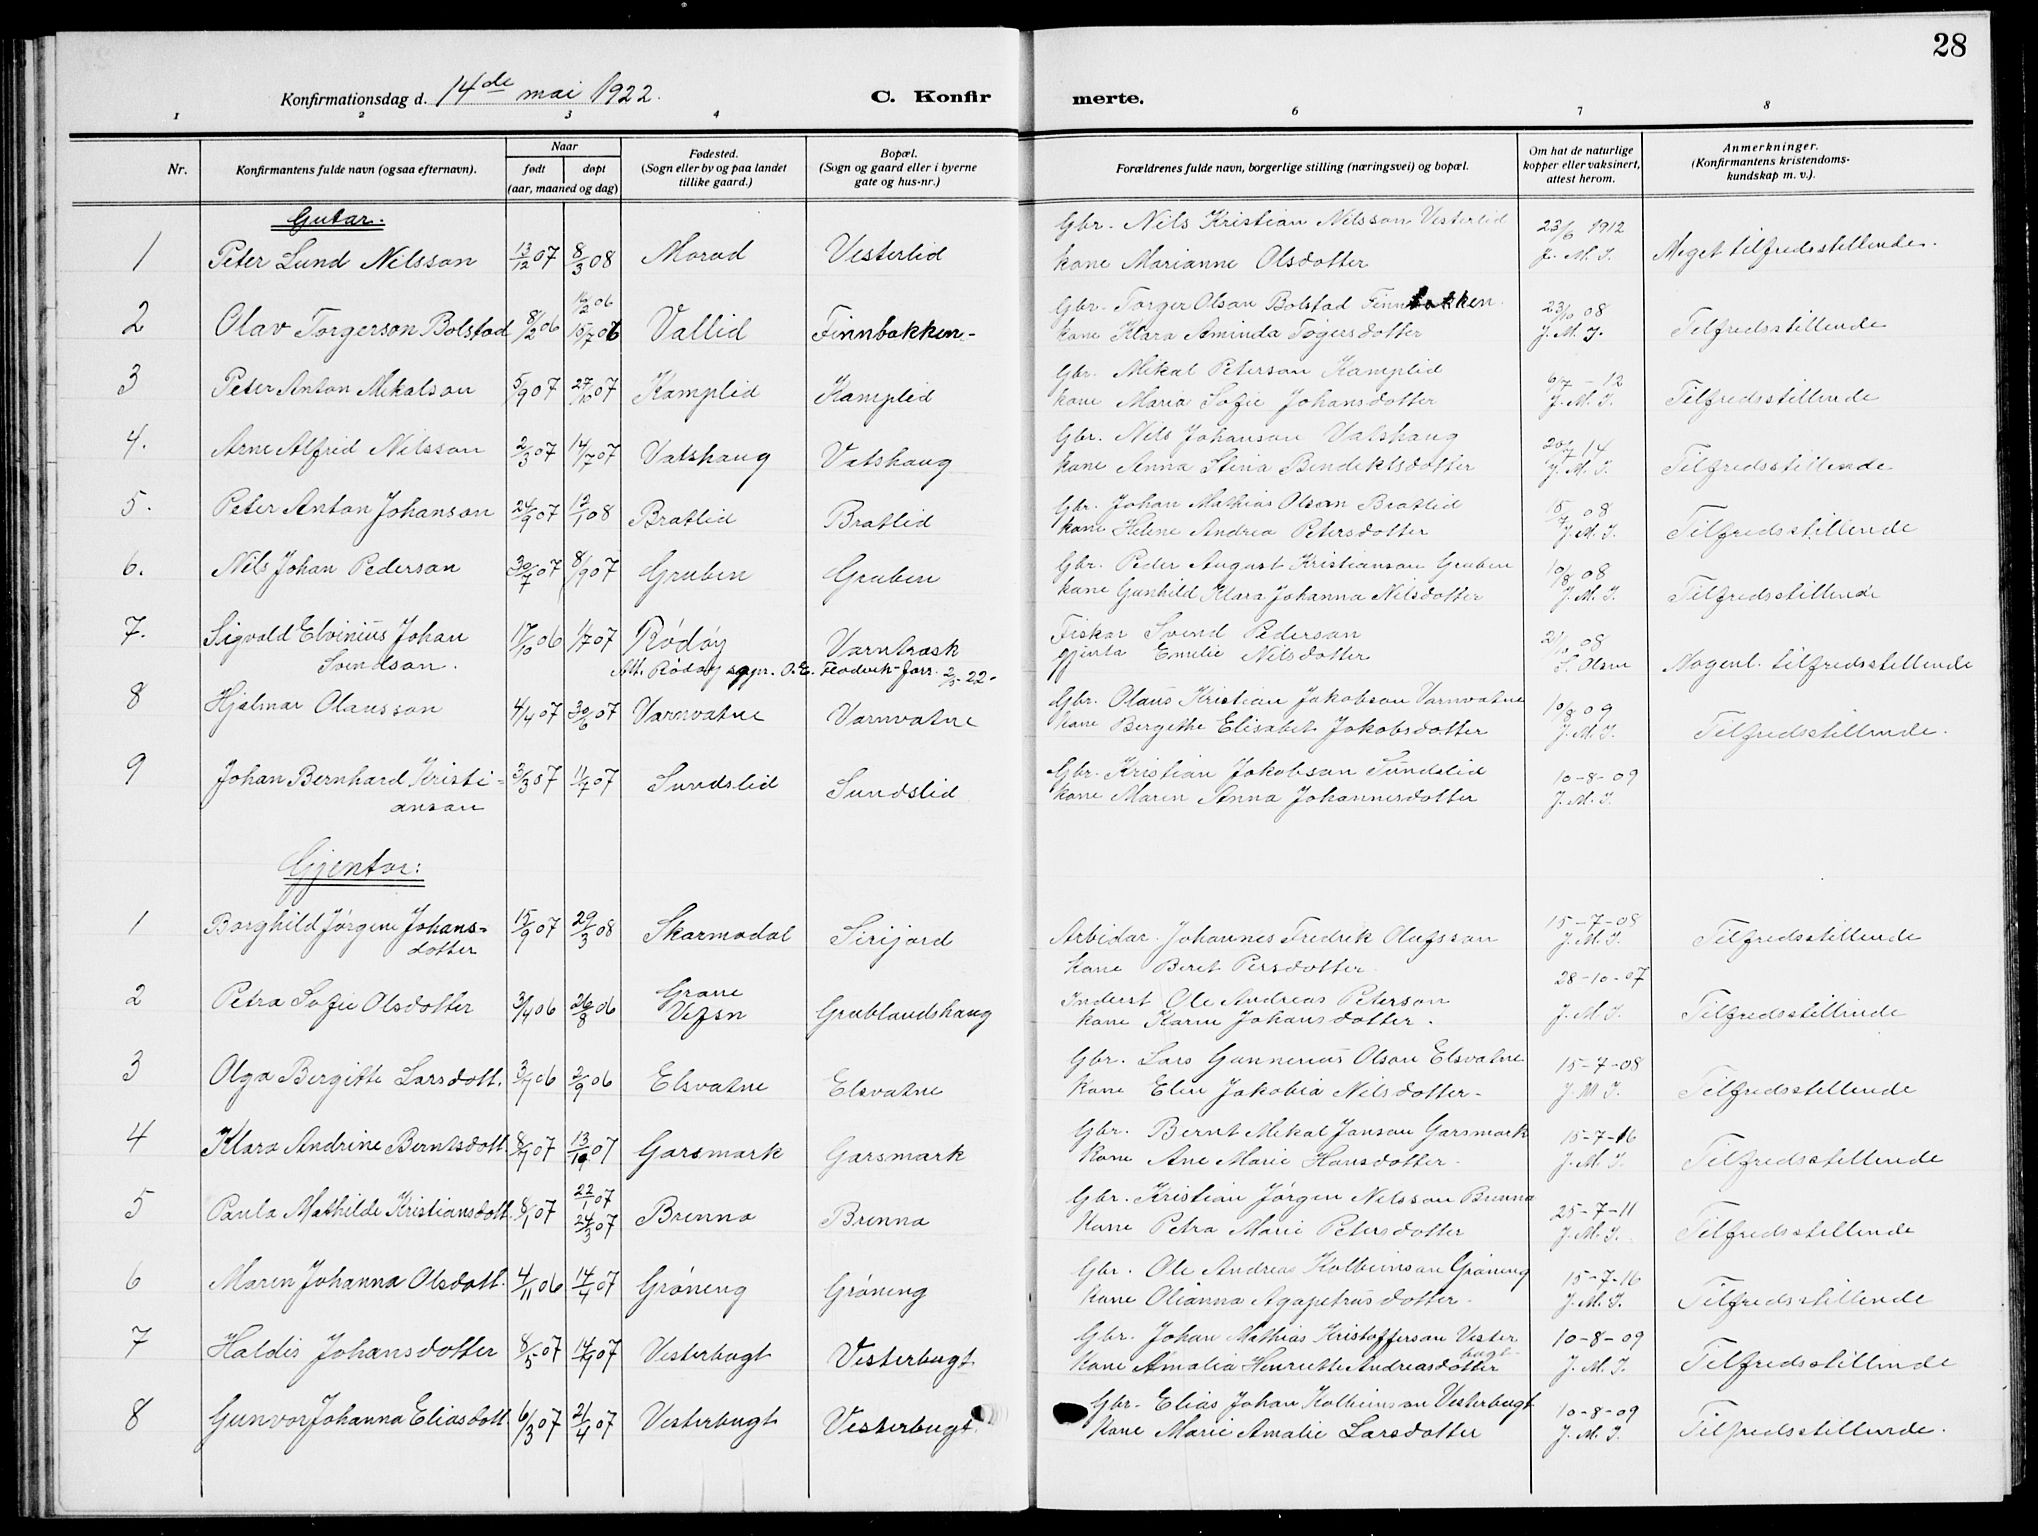 28
Konfirmationsdag d. 14de mai 1922.
C. Konfirmerte.
1 2 3 4 6 7 8
Nr.
Konfirmantens fulde navn (ogsaa efternavn).
Naar
født
døpt
(aar, maaned og dag)
Fødested.
(Sogn eller by og paa landet
tillike gaard.)
Bopæl.
(Sogn og gaard eller i byerne
gate og hus-nr.)
Forældrenes fulde navn, borgerlige stilling (næringsvei) og bopæl.
Om hat de naturlige
kopper eller vaksinert,
attest herom.
Anmerkninger.
(Konfirmantens kristendoms-
kundskap m. v.).
Gutar.
1 Peter Lund Nilsson 13/12 07 8/3 08 Vesterlid Gbr. Nils Kristian Nilsson Vesterlid 23/6 1912
kone Marianne Olsdotter J. M. J. Meget tilfredsstillende.
2 Olav Torgerson Bolstad 8/2 06 15/7 06 Vallid Finnbakken Gbr. Torger Olson Bolstad Finnbakken 23/10 08
kone Klara Aminda Togersdotter J. M. J. Tilfredsstillende
3 Peter Anton Mikalson 5/9 07 27/10 07 Kamplid Kamplid Gbr. Mikal Peterson Kamplid 6/7 - 12
kone Maria Sofie Johansdotter J. M. J. Tilfredsstillende
4. Arne Alfred Nilsson 2/3 07 14/7 07 Vatshaug Vatshaug Gbr. Nils Johanson Vatshaug 20/7 14
kone Anna Stina Bendiktsdotter J. M. J. Tilfredsstillende
5. Peter Anton Johanson 24/9 07 12/1 08 Bratlid Bratlid Gbr. Johan Mathias Olson Bratlid 15/7 08
kone Helene Andrea Petersdotter J. M. J. Tilfredsstillende
6. Nils Johan Pederson 30/7 07 8/9 07 Gruben Gruben Gbr. Peder August Kristianson Gruben 10/8 08
kone Gunhild Klara Johanna Nilsdotter J. M. J. Tilfredsstillende
7. Sigvald Elvinius Johan 17/10 06 1/7 07 Rødøy Varntræsk Fiskar Svend Pederson 21/10 08
Svendson. Att. Rødøy sgpr. O. E. gjenta Emelie Nilsdotter S. Olsen Nogenl. tilfredsstillende
8 Hjalmar Olausson 4/4 07 30/6 07 Varnvatne Varnvatne Gbr. Olaus Kristian Jakobson Varnvatne 10/8 09
kone Bergithe Elisabet Jakobsdotter J. M. J. Tilfredsstillende.
9 Johan Bernhard Kristi- 3/3 07 11/7 07 Sundslid Sundslid Gbr. Kristian Jakobson Sundslid 10-8-09
anson kone Maren Anna Johannesdotter J. M. J.
Gjentor:
1 Borghild Jørgine Johans- 15/9 07 29/3 08 Skarmodal Sirijord Arbidar Johannes Fredrik Olafsson 15-7-08
dotter kone Beret Persdotter. J. M. J. Tilfredsstillende
2 Petra Sofie Olsdotter 3/4 06 26/8 06 Grane Vefsn Grublandshaug Inderst Ole Andreas Peterson 28-10-07
kone Karen Johansdotter. J. M. J. Tilfredsstillende
3 Olga Bergitte Larsdott. 3/7 06 2/9 06 Elsvatne Elsvatne Gbr. Lars Gunnerius Olson Elsvatne 15-7-08
kone Elen Jakobia Nilsdotter. J. M. J. Tilfredsstillende
4 Klara Andrine Berntsdott. 8/7 07 13/10 07 Garsmark Garsmark Gbr. Bernt Mikal Janson Garsmark 15-7-16
kone Ane Marie Hansdotter. J. M. J. Tilfredsstillende
5 Paula Mathilde Kristiansdott. 8/1 07 22/1 07 24/3 07 Brenna Brenna Gbr. Kristian Jørgen Nilsson Brenna 25-7-11
kone Petra Marie Petersdotter J. M. J. Tilfredsstillende
6 Maren Johanna Olsdott. 4/11 06 14/4 07 Grøneng Grøneng Gbr. Ole Andreas Kolbeinson Grøneng 15-7-16
kone Olianna Agapetrusdotter. J. M. J. Tilfredsstillende
7 Haldis Johansdotter 8/5 07 14/9 07 Vesterbugt Vesterbugt Gbr. Johan Mathias Kristofferson Vester 10-8-09
bugt
kone Amalia Henriette Andreasdotter J. M. J. Tilfredsstillende
8 Gunvor Johanna Eliasdott. 6/3 07 21/4 07 Vesterbugt Vesterbugt. Gbr. Elias Johan Kolbeinson Vesterbugt 10-8-09
kone Marie Amalie Larsdotter J. M. J. Tilfredsstillende.